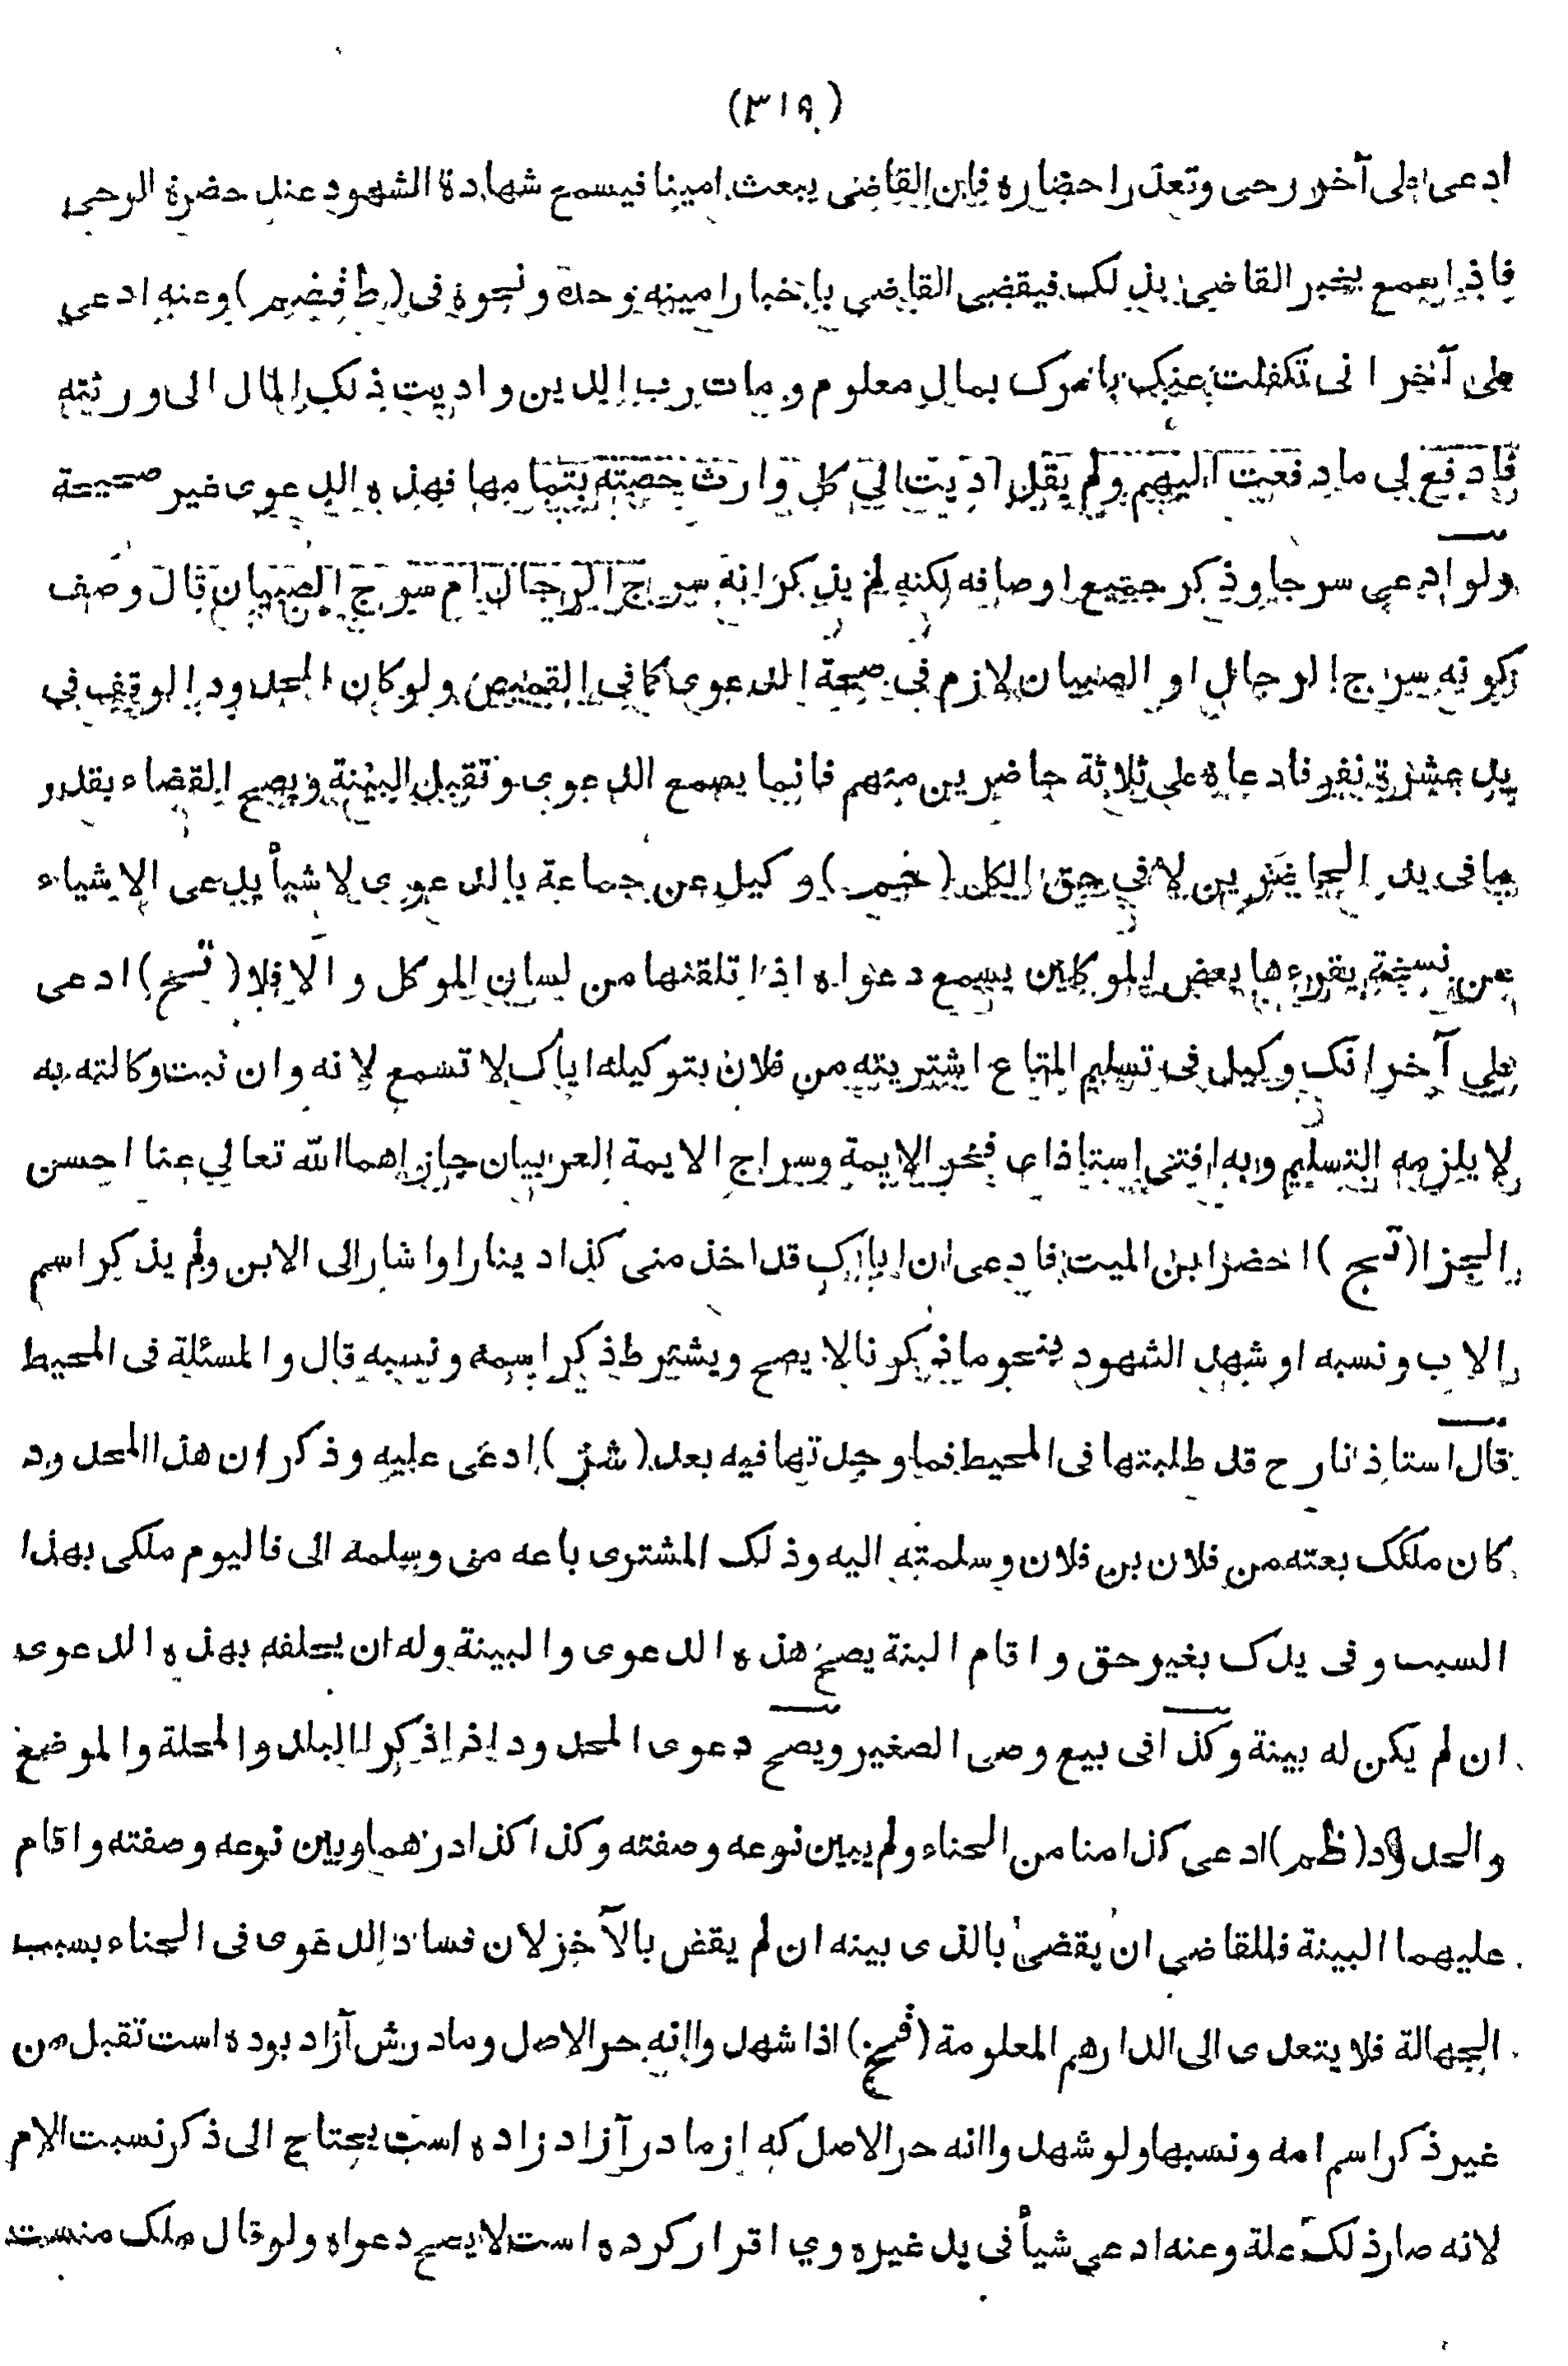 (٣١٩)
ادعى على آخر رحى وتعذر احضاره فان القاضى يبعث امينا فيسمع شهادة الشهود عند حضرة الرحى
فاذا سمع يخبر القاضى بذلك فيقضى القاضى باخبار امينه وحده ونحوه فى (ط فضم) وعنه ادعى
على آخر انى تكفلت عنك بامرك بمال معلوم ومات رب الدين واديت ذلك المال الى ورثته
فادفع لى ما دفعت اليهم ولم يقل اديت الى كل وارث حصته بتمامها فهذه الدعوى غير صحيحة
ولو ادعى سرجا وذكر جميع اوصافه لكنه لم يذكر انه سرج الرجال ام سرج الصبيان قال وصف
كونه سرج الرجال او الصبيان لازم فى صحة الدعوى كما فى القميص ولو كان المحدود الوقف فى
يد عشرة نفر فادعاه على ثلاثة حاضرين منهم فانما يسمع الدعوى وتقبل البينة ويصح القضاء بقدر
ما فى يد الحاضرين لا فى حق الكل (خم) وكيل عن جماعة بالدعوى لاشيأ يدعى الاشياء
عن نسخة يقرءها بعض الموكلين يسمع دعواه اذا تلقنها من لسان الموكل والا فلا (تسخ) ادعى
على آخر انك وكيل فى تسليم المتاع اشتريته من فلان بتوكيله اياك لا تسمع لانه وان ثبت وكالته به
لا يلزمه التسليم وبه افتنى استاذاى فخر الايمة وسراج الايمة العربيان جازاهما الله تعالى عنا احسن
الجزا (تج) احضر ابن الميت فادعى ان اباك قد اخذ منى كذا دينارا واشار الى الابن ولم يذكر اسم
الاب ونسبه او شهد الشهود بنحو ما ذكرنا لا يصح ويشترط ذكر اسمه ونسبه قال والمسئلة فى المحيط
قال استاذنا رح قد طلبتها فى المحيط فما وجدتها فيه بعد (شز) ادعى عليه وذكر ان هذا المحدود
كان ملكك بعته من فلان بن فلان وسلمته اليه وذلك المشترى باعه منى وسلمه الى فاليوم ملكى بهذا
السبب وفى يدك بغير حق واقام البنة يصح هذه الدعوى والبينة وله ان يحلفه بهذه الدعوى
ان لم يكن له بينة وكذا فى بيع وصى الصغير ويصح دعوى المحدود اذا ذكر البلد والمحلة والموضع
والحدود (ظم) ادعى كذا منا من الحناء ولم يبين نوعه وصفته وكذا كذا درهما وبين نوعه وصفته واقام
عليهما البينة فللقاضى ان يقضى بالذى بينه ان لم يقض بالآخر لان فساد الدعوى فى الحناء بسبب
الجهالة فلا يتعدى الى الدارهم المعلومة (فخ) اذا شهدوا انه حر الاصل ومادرش آزاد بوده است تقبل من
غير ذكر اسم امه ونسبها ولو شهدوا انه حر الاصل كه از مادر آزاد زاده است يحتاج الى ذكر نسبت الام
لانه صار ذلك علة وعنه ادعى شيأ فى يد غيره وي اقرار كرده است لا يصح دعواه ولو قال ملك منست